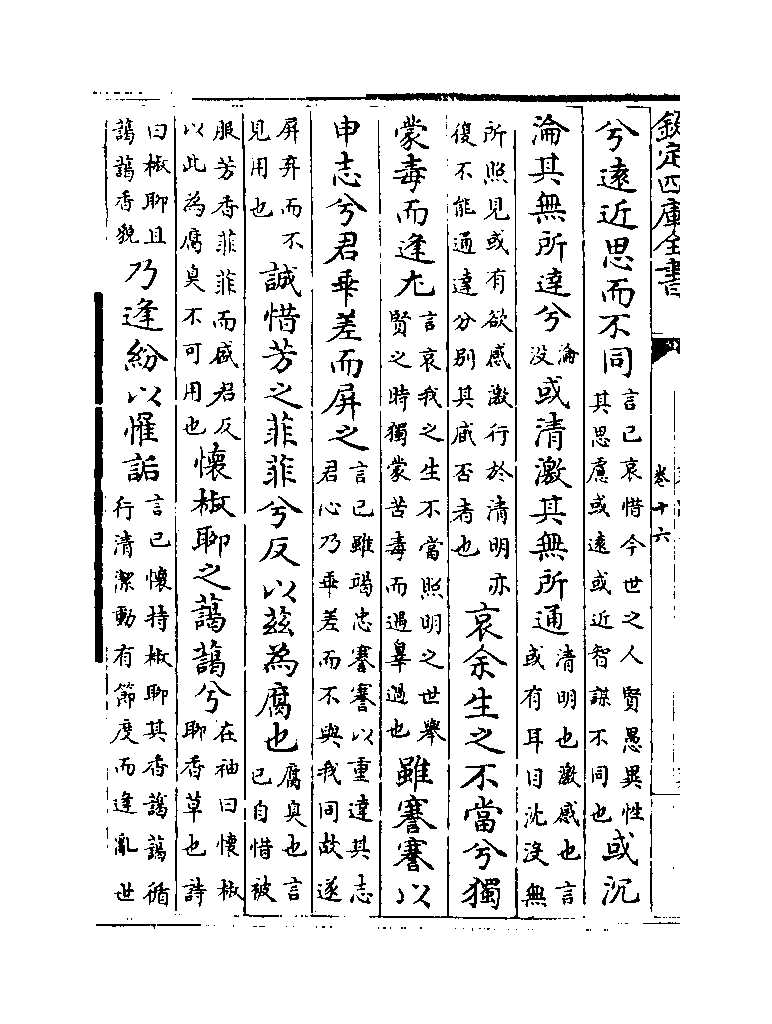 欽定四庫全書
卷十六
兮遠近思而不同言已哀惜今世之人賢愚異性其思慮或遠或近智謀不同也或沉
淪其無所達兮淪没或清激其無所通清明也激感也言或有耳目沈没無
所照見或有欲感激行於清明亦復不能通達分别其臧否者也哀余生之不當兮獨
蒙毒而逢尤言哀我之生不當照明之世舉賢之時獨蒙苦毒而遇辠過也雖謇謇以
申志兮君乖差而屏之言已雖竭忠謇謇以重達其志君心乃乖差而不與我同故遂
屏弃而不見用也誠惜芳之菲菲兮反以兹為腐也腐臭也言已自惜被
服芳香菲菲而盛君反以此為腐臭不可用也懷椒聊之藹藹兮在袖曰懷椒聊香草也詩
曰椒聊且藹藹香貌乃逢紛以罹詬言已懷持椒聊其香藹藹循行清潔動有節度而逢亂世